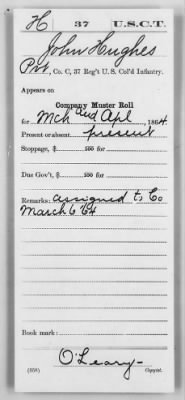 H 37 U.S.C.T.
John Hughes
Pvt, Co. C, 37 Reg't U. S. Col'd Infantry.
Appears on
Company Muster Roll
for Mch and Apl, 1864
Present or absent present
Stoppage, $ 100 for
Due Gov't, $ 100 for
Remarks: assigned to Co
March 6 '64
Book mark:
O'Leary-
(358) Copyist.